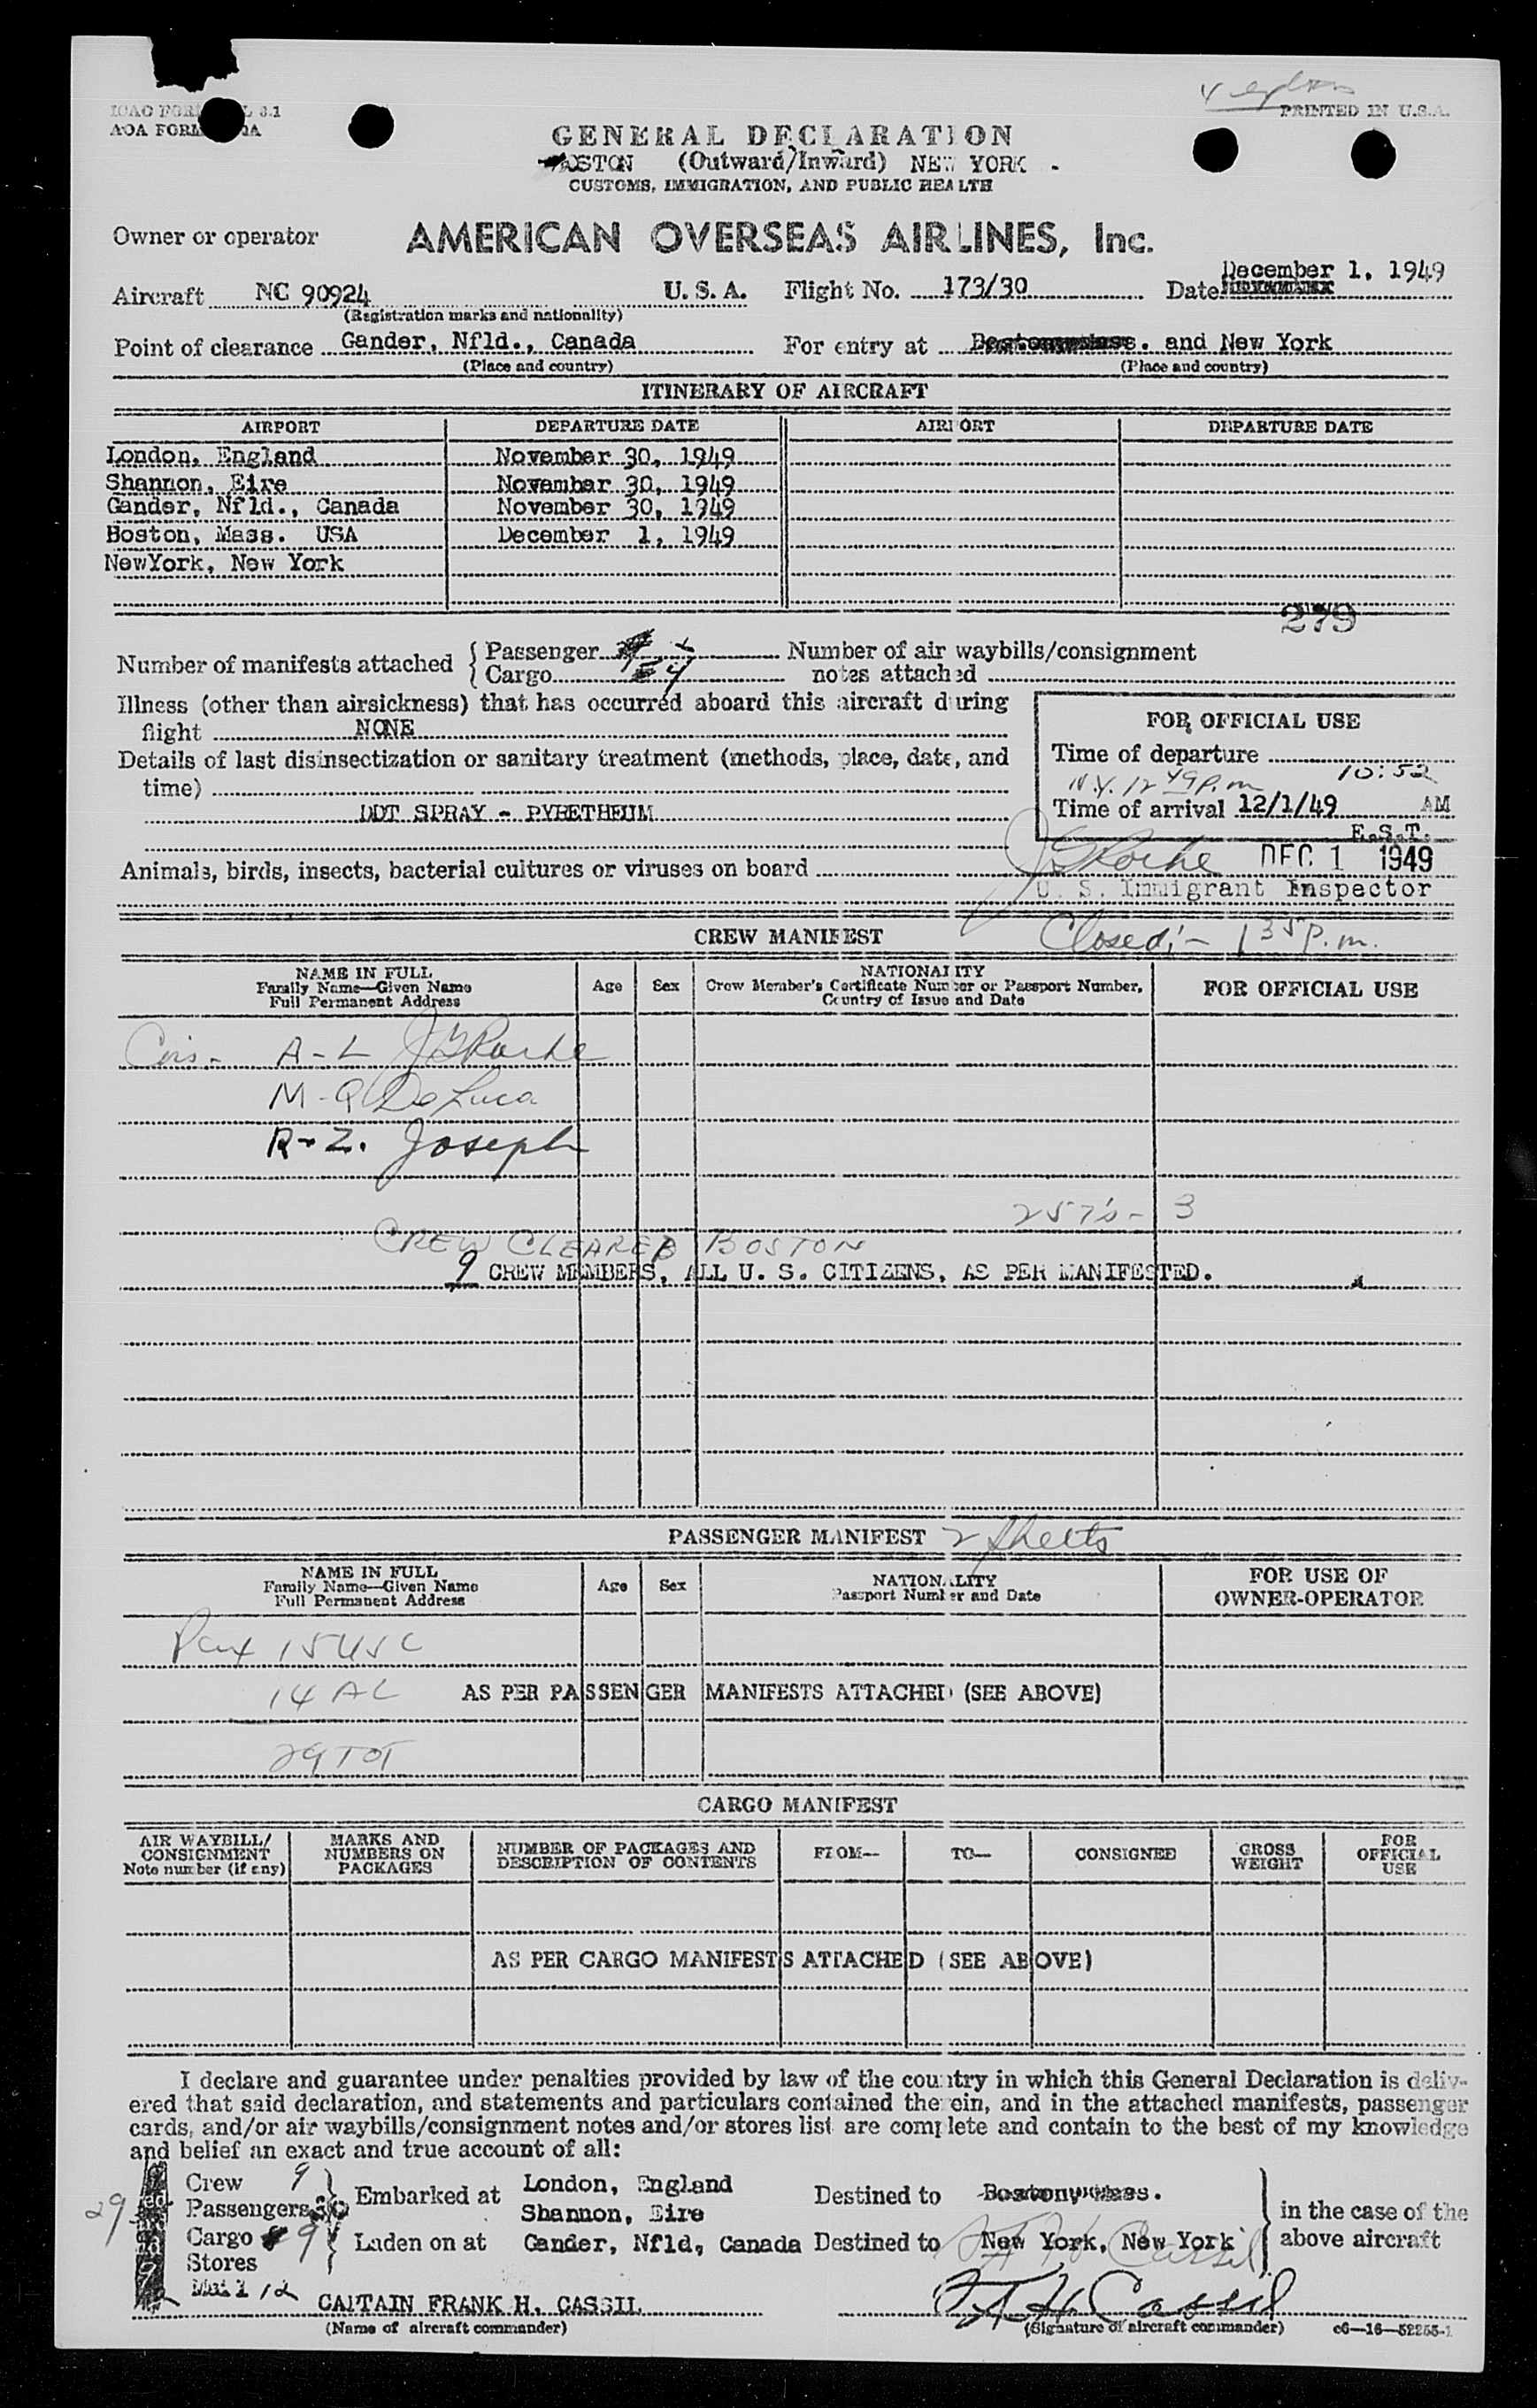 ICAO FOR L 3.1
AOA FORM QA
PRINTED IN U.S.A.
GENERAL DECLARATION
BOSTON (Outward/Inward) NEW YORK -
CUSTOMS, IMMIGRATION, AND PUBLIC HEALTH
Owner or operator AMERICAN OVERSEAS AIRLINES, Inc.
Aircraft NC 90924 U. S. A. Flight No. 173/30 Date December 1, 1949
(Registration marks and nationality)
Point of clearance Gander, Nfld., Canada For entry at Boston, Mass. and New York
(Place and country) (Place and country)
ITINERARY OF AIRCRAFT
AIRPORT DEPARTURE DATE AIRPORT DEPARTURE DATE
London, England November 30, 1949
Shannon, Eire November 30, 1949
Gander, Nfld., Canada November 30, 1949
Boston, Mass. USA December 1, 1949
NewYork, New York
279
Number of manifests attached { Passenger Number of air waybills/consignment
Cargo notes attached
Illness (other than airsickness) that has occurred aboard this aircraft during
flight NONE
FOR OFFICIAL USE
Details of last disinsectization or sanitary treatment (methods, place, date, and
time)
DDT SPRAY - PYRETHEUM
Time of departure
10:52
N.Y. 12 49 p.m
Time of arrival 12/1/49 AM
E.S.T.
Animals, birds, insects, bacterial cultures or viruses on board
J G Roche DEC 1 1949
U. S. Immigrant Inspector
CREW MANIFEST Closed;- 1 35 p.m.
NAME IN FULL
Family Name—Given Name
Full Permanent Address
Age Sex
NATIONALITY
Crew Member's Certificate Number or Passport Number,
Country of Issue and Date
FOR OFFICIAL USE
A-L J G Roche
M-Q De Luca
R-Z. Joseph
257's - 3
CREW CLEARED BOSTON
9 CREW MEMBERS, ALL U. S. CITIZENS, AS PER MANIFESTED.
PASSENGER MANIFEST 2 sheets
NAME IN FULL
Family Name—Given Name
Full Permanent Address
Age Sex
NATIONALITY
Passport Number and Date
FOR USE OF
OWNER-OPERATOR
Pax 15 USC
14 AL AS PER PASSENGER MANIFESTS ATTACHED (SEE ABOVE)
29 TOT
CARGO MANIFEST
AIR WAYBILL/
CONSIGNMENT
Note number (if any)
MARKS AND
NUMBERS ON
PACKAGES
NUMBER OF PACKAGES AND
DESCRIPTION OF CONTENTS
FROM— TO— CONSIGNEE
GROSS
WEIGHT
FOR
OFFICIAL
USE
AS PER CARGO MANIFESTS ATTACHED (SEE ABOVE)
I declare and guarantee under penalties provided by law of the country in which this General Declaration is deliv-
ered that said declaration, and statements and particulars contained therein, and in the attached manifests, passenger
cards, and/or air waybills/consignment notes and/or stores list are complete and contain to the best of my knowledge
and belief an exact and true account of all:
Crew 9
29 Passengers
Cargo 9
Stores
Mail 12
Embarked at London, England
Shannon, Eire
Laden on at Gander, Nfld, Canada
Destined to Boston, Mass.
Destined to New York, New York
in the case of the
above aircraft
CAPTAIN FRANK H. CASSIL
(Name of aircraft commander)
F H Cassil
(Signature of aircraft commander) c6—16—52255-1